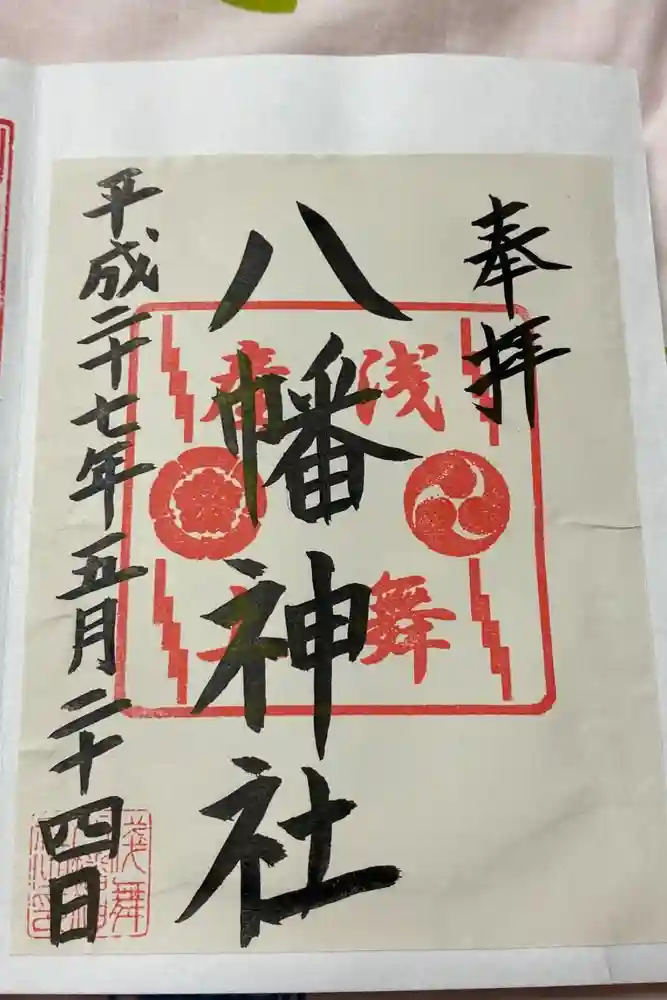 奉拝
八幡神社
平成二十七年五月二十四日
浅舞
産土
浅舞